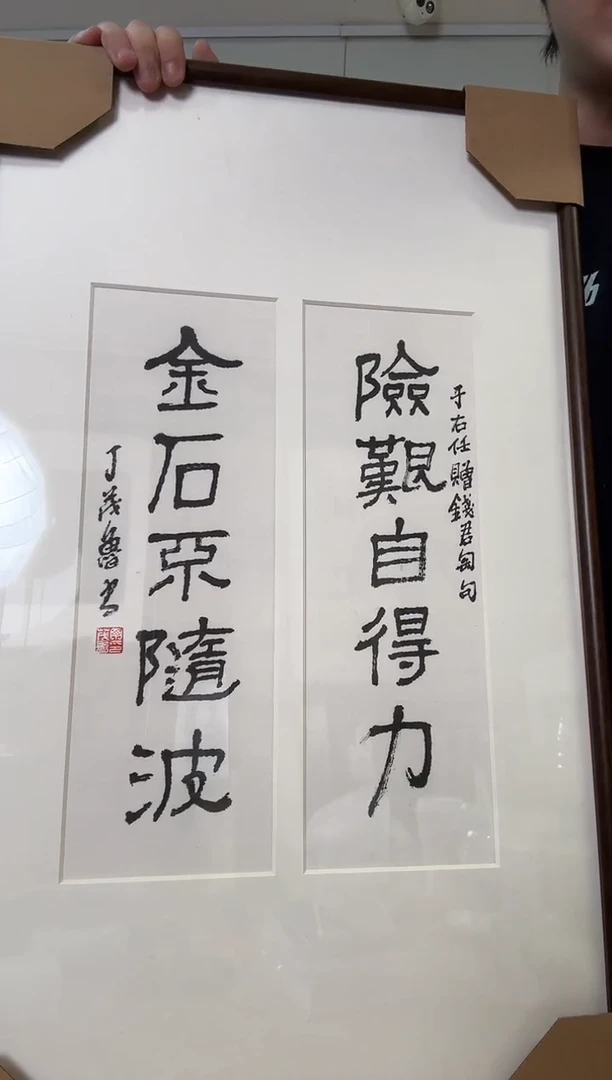 于右任贈錢君匋句
險艱自得力
金石不隨波
丁茂魯书